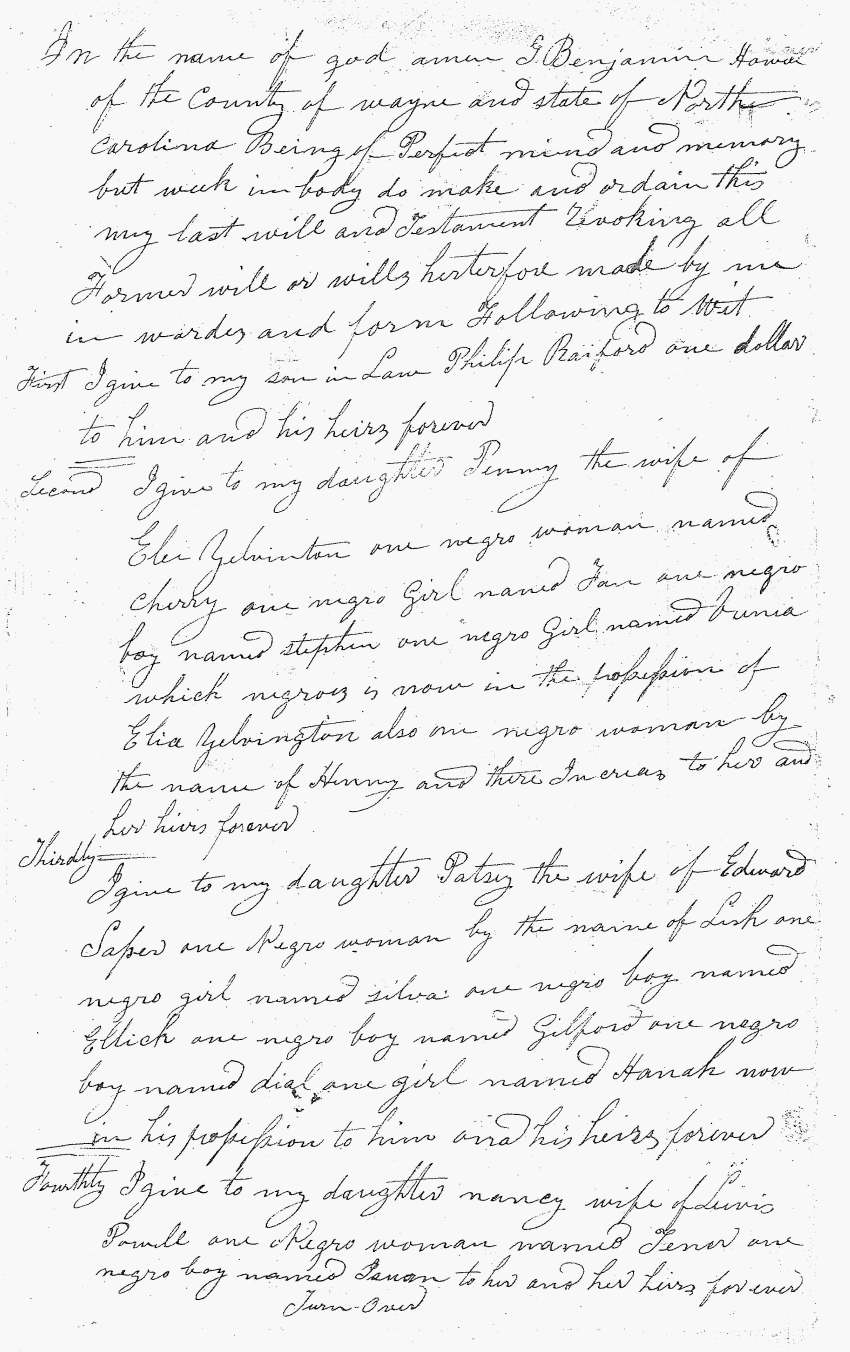 In the name of god amen I Benjamin Howell
of the County of wayne and state of North
carolina Being of Perfect mind and memory
but week in body do make and ordain this
my last will and Testament Revoking all
Former will or wills herterfore made by me
in wordes and form Following to Wit
First I give to my son in Law Philip Raiford one dollar
to him and his heirs forever
Second I give to my daughter Penny the wife of
Elei Yelvinton one negro woman named
cherry one negro Girl named Fan one negro
boy named stephen one negro Girl named
which negroes is now in the possession of
Elia Yelvington also one negro woman by
the name of Hinny and there Increas to her and
her hiers forever
Thirdly
I give to my daughter Patsey the wife of Edward
Saser one Negro woman by the name of Lish one
negro girl named silva one negro boy named
Ellick one negro boy named Gilford one negro
boy named dial one girl named Hanah now
in his possession to him and his heirs forever
Fourthly I give to my daughter nancy wife of Lewis
Powell one Negro woman named Tener one
negro boy named to her and her heirs forever
Turn Over